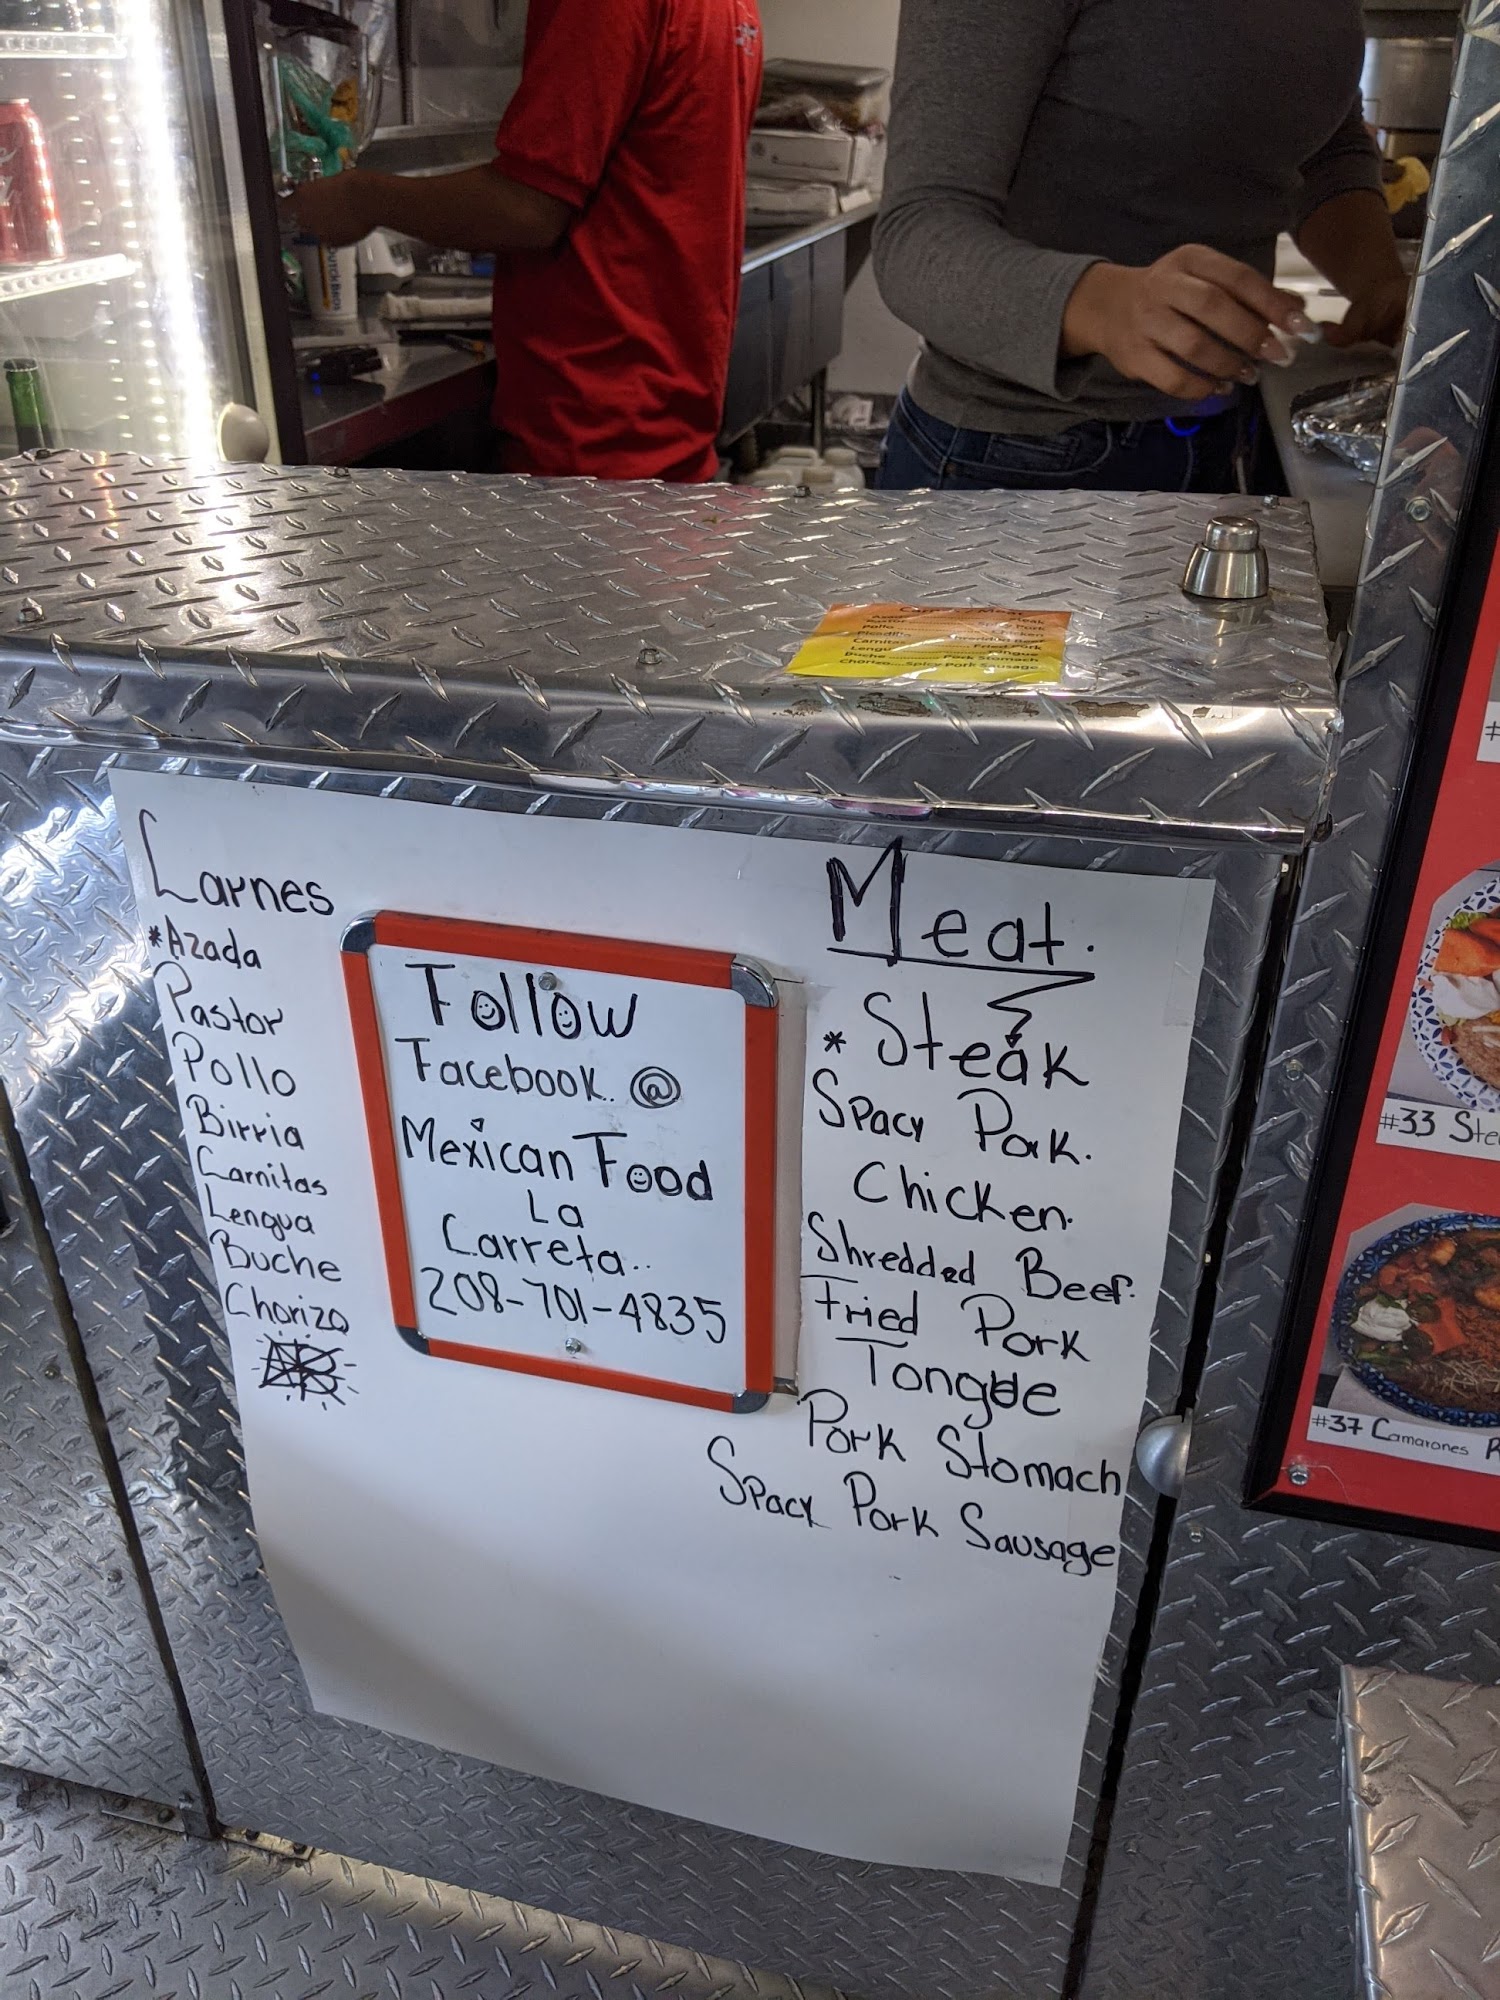 Steak
Pollo
Chicken
Picadillo
Fried Pork
Buche Pork Stomach
Chorizo....Spicy Pork Sausage
Carnes
*Azada
Pastor
Pollo
Birria
Carnitas
Lengua
Buche
Chorizo
Follow
Facebook. @
Mexican Food
La
Carreta..
208-701-4835
Meat.
* Steak
Spacy Pork.
Chicken.
Shredded Beef.
Fried Pork
Tongue
Pork Stomach
Spacy Pork Sausage
#33 Ste
#37 Camarones R